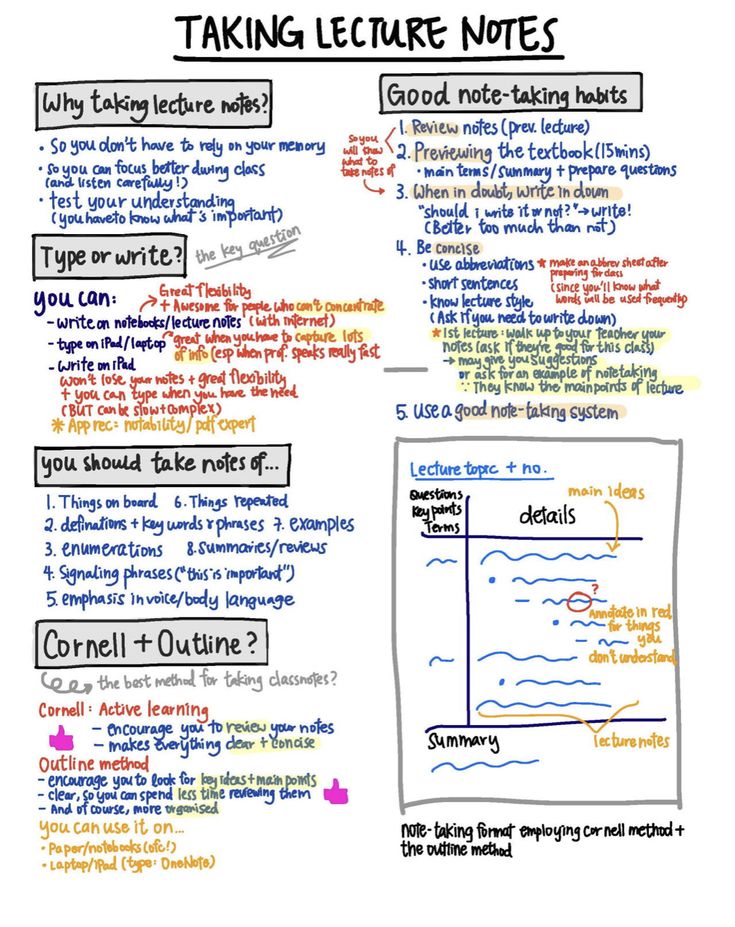 TAKING LECTURE NOTES
Why taking lecture notes?
• So you don't have to rely on your memory
• So you can focus better during class
(and listen carefully!)
• test your understanding
(you have to know what's important)
Type or write?
the key question
you can:
Great flexibility
+ Awesome for people who can't concentrate
- write on notebooks/lecture notes (with internet)
- type on iPad/laptop
great when you have to capture lots
of info (esp when prof. speaks really fast
- write on iPad
won't lose your notes + great flexibility
+ you can type when you have the need
(BUT can be slow+complex)
* App rec: notability/pdf expert
you should take notes of...
1. Things on board
2. definations + key words & phrases
3. enumerations
4. Signaling phrases ("this is important")
5. emphasis in voice/body language
6. Things repeated
7. examples
8. Summaries/reviews
Cornell + Outline?
the best method for taking classnotes?
Cornell: Active learning
- encourage you to review your notes
- makes everything clear + concise
Outline method
- encourage you to look for key ideas + main points
- clear, so you can spend less time reviewing them
- And of course, more organised
You can use it on...
• Paper/notebooks (ofc!)
• Laptop/iPad (type: OneNote)
Good note-taking habits
so you
will know
what to
take notes of
1. Review notes (prev. lecture)
2. Previewing the textbook (15mins)
• main terms/summary + prepare questions
3. When in doubt, write in down
"should i write it or not?" → write!
(Better too much than not)
4. Be concise
• use abbreviations
* make an abbrev sheet after
preparing for class
(since you'll know what
words will be used frequently)
• short sentences
• know lecture style
(Ask if you need to write down)
* 1st lecture: walk up to your teacher your
notes (ask if they're good for this class)
→ may give you suggestions
or ask for an example of notetaking
∵ They know the main points of lecture
5. Use a good note-taking system
Lecture topic + no.
Questions
Key points
Terms
details
main ideas
?
Annotate in red
for things
you
don't understand
Summary
lecture notes
note-taking format employing cornell method +
the outline method